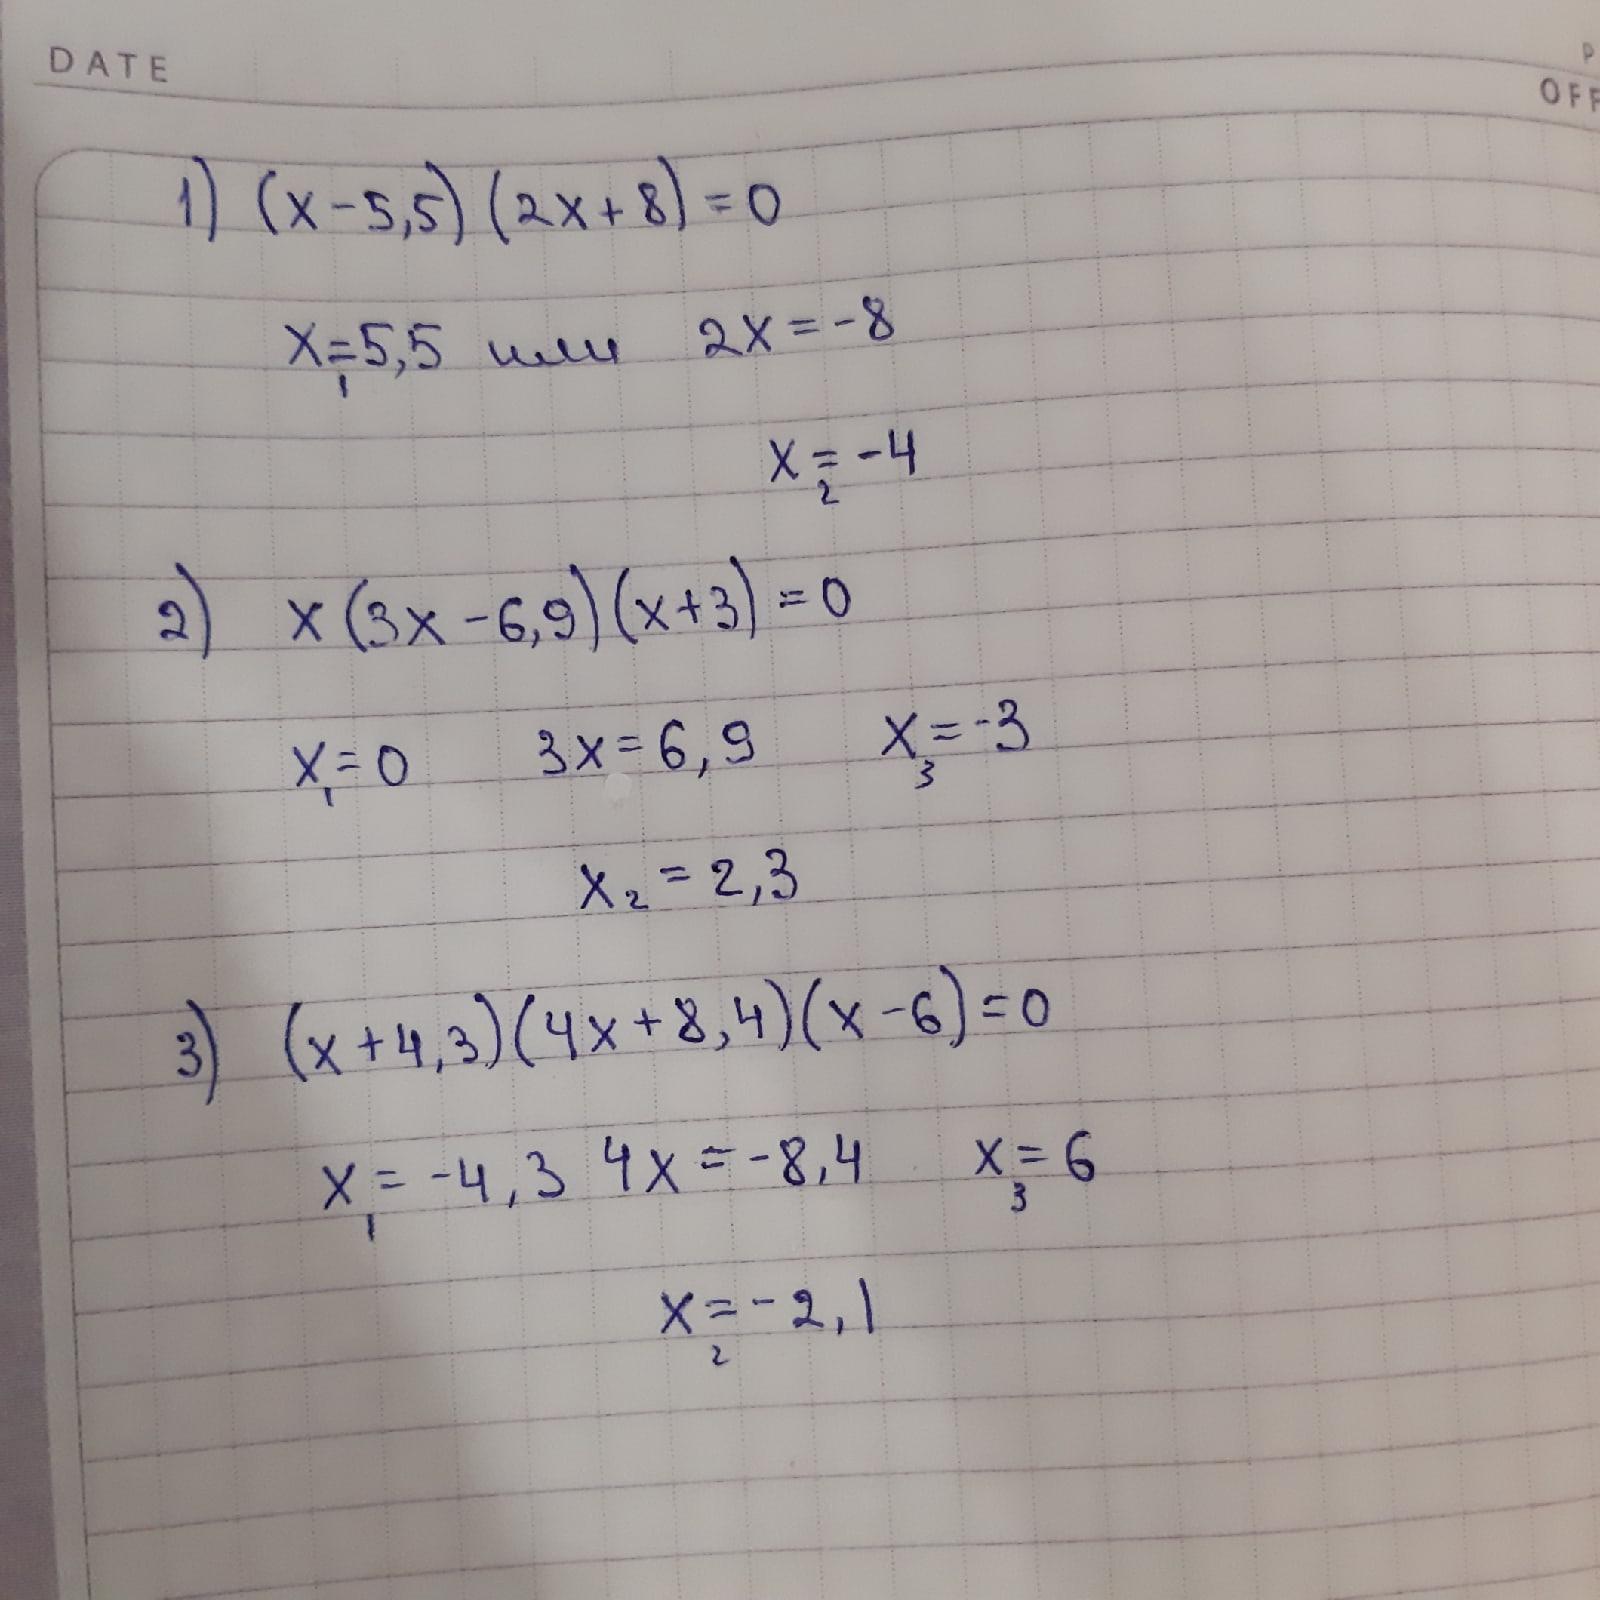 DATE
P
OFF
1) (x-5,5)(2x+8)=0
x₁=5,5 или 2x=-8
x₂=-4
2) x(3x-6,9)(x+3)=0
x₁=0 3x=6,9 x₃=-3
x₂=2,3
3) (x+4,3)(4x+8,4)(x-6)=0
x₁=-4,3 4x=-8,4 x₃=6
x₂=-2,1